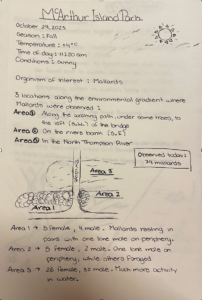 McArthur Island Park
October 29, 2023
Season: Fall
Temperature: +4°C
Time of day: 11:20 am
Conditions: Sunny
Organism of interest: Mallards
3 locations along the environmental gradient where
Mallards were observed:
Area ① Along the walking path, under some trees, to
the left (S.W.) of the bridge
Area ② On the rivers bank (S.E)
Area ③ In the North Thompson River
Observed today:
79 mallards
Area 3
Area 2
Area 1
Area 1 → 5 female, 4 male. Mallards nesting in
pairs with one lone male on periphery.
Area 2 → 5 female, 2 male. One lone male on
periphery, while others foraged
Area 3 → 26 female, 32 male. Much more activity
in water.